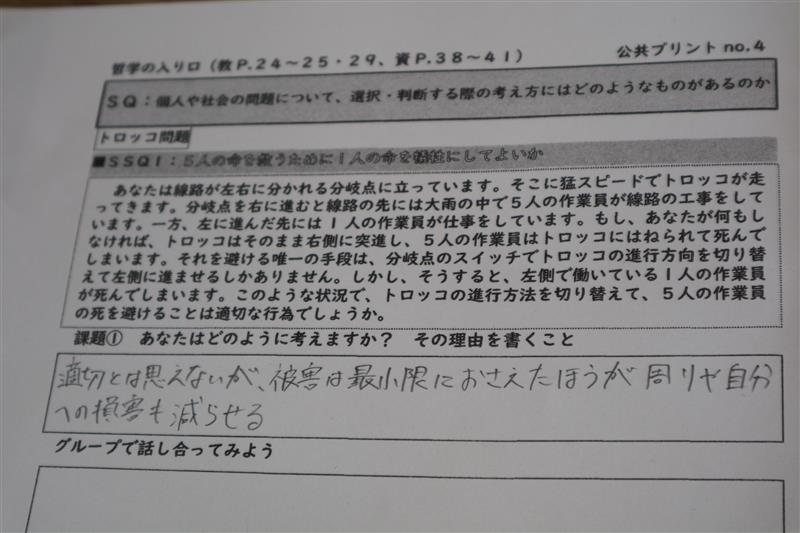 哲学の入り口（教P.24～25・29、資P.38～41）
公共プリント no.4
SQ：個人や社会の問題について、選択・判断する際の考え方にはどのようなものがあるのか
トロッコ問題
■SSQ1：5人の命を救うために1人の命を犠牲にしてよいか
あなたは線路が左右に分かれる分岐点に立っています。そこに猛スピードでトロッコが走
ってきます。分岐点を右に進むと線路の先には大雨の中で5人の作業員が線路の工事をして
います。一方、左に進んだ先には1人の作業員が仕事をしています。もし、あなたが何もし
なければ、トロッコはそのまま右側に突進し、5人の作業員はトロッコにはねられて死んで
しまいます。それを避ける唯一の手段は、分岐点のスイッチでトロッコの進行方向を切り替
えて左側に進ませるしかありません。しかし、そうすると、左側で働いている1人の作業員
が死んでしまいます。このような状況で、トロッコの進行方法を切り替えて、5人の作業員
の死を避けることは適切な行為でしょうか。
課題① あなたはどのように考えますか？ その理由を書くこと
適切とは思えないが、被害は最小限におさえたほうが周りや自分
への損害も減らせる
グループで話し合ってみよう